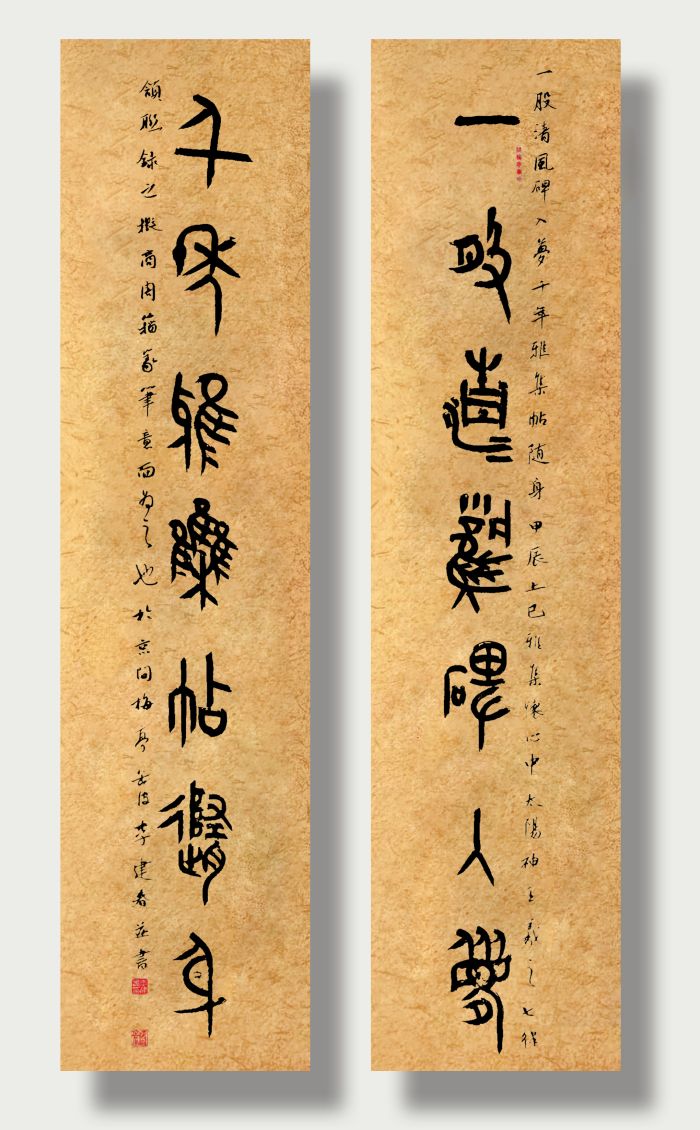 一股清風碑入夢千年雅集帖随身甲辰上巳雅集懷心中太陽神王羲之七律
一股清風碑入夢
千年雅集帖隨身
頷聯錄之擬商周籀篆筆意而为之也於京問梅李建春並書